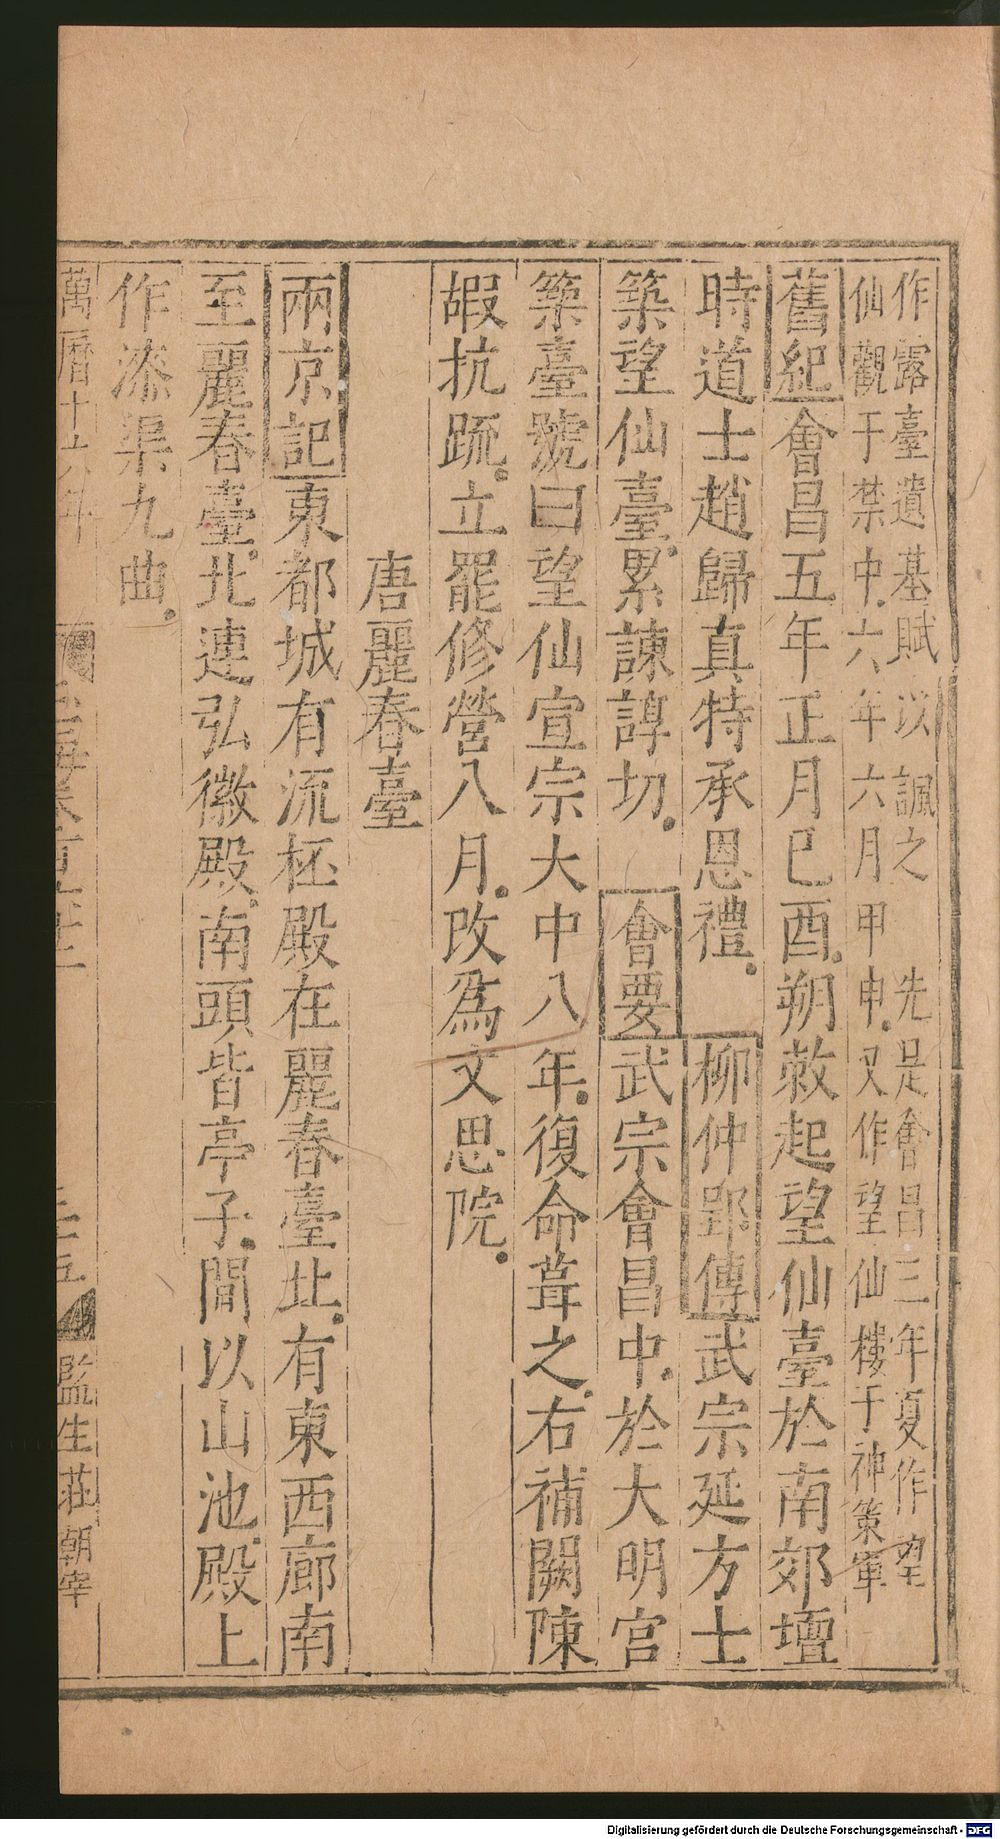 作露臺遺基賦以諷之　先是會昌三年夏作望
仙觀于禁中六年六月甲申又作望仙樓于神策軍
舊紀會昌五年正月巳酉朔敕起望仙臺於南郊壇
時道士趙歸真特承恩禮　柳仲郢傳武宗延方士
築望仙臺累諫諄切　會要武宗會昌中於大明宮
築臺號曰望仙宣宗大中八年復命葺之右補闕陳
嘏抗疏立罷修營八月改爲文思院
唐麗春臺
兩京記東都城有流杯殿在麗春臺北有東西廊南
至麗春臺北連弘徽殿南頭皆亭子間以山池殿上
作漆渠九曲
萬曆十六年
監生莊朝宰
Digitalisierung gefördert durch die Deutsche Forschungsgemeinschaft - DFG